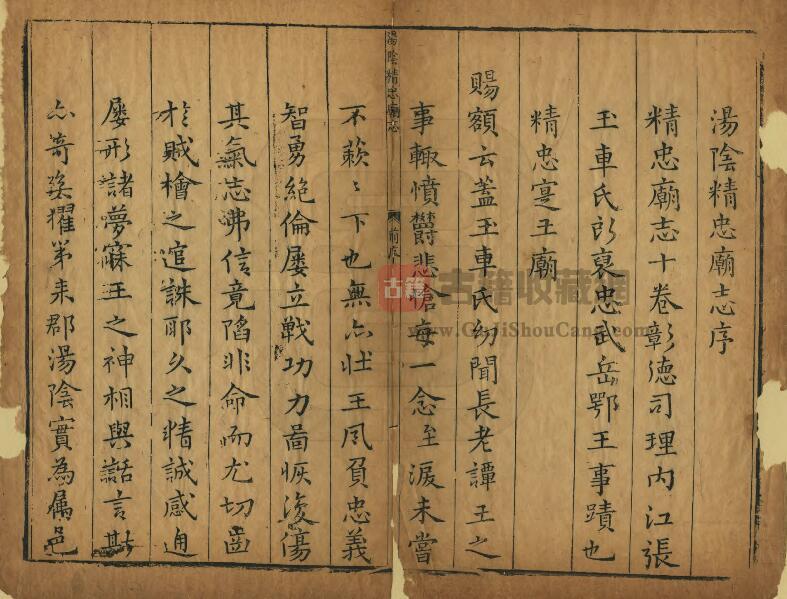 湯陰精忠廟志序
精忠廟志十卷彰德司理內江張
玉車氏所裒忠武岳鄂王事蹟也
精忠寔王廟
賜額云蓋玉車氏幼聞長老譚王之
事輙憤欝悲愴每一念至淚未嘗
湯陰精忠廟志
前序
不蔌〻下也無亦壮王夙負忠義
智勇絶倫屢立戰功力啚恢復傷
其氣志沸信竟陷非命而尤切齒
扵賊檜之逭誅耶久之精誠感通
屡形諸夢寐王之神相與話言斯
亦竒矣擢第来郡湯陰實為属邑
古籍
古籍收藏網
www.GuJiShouCang.com